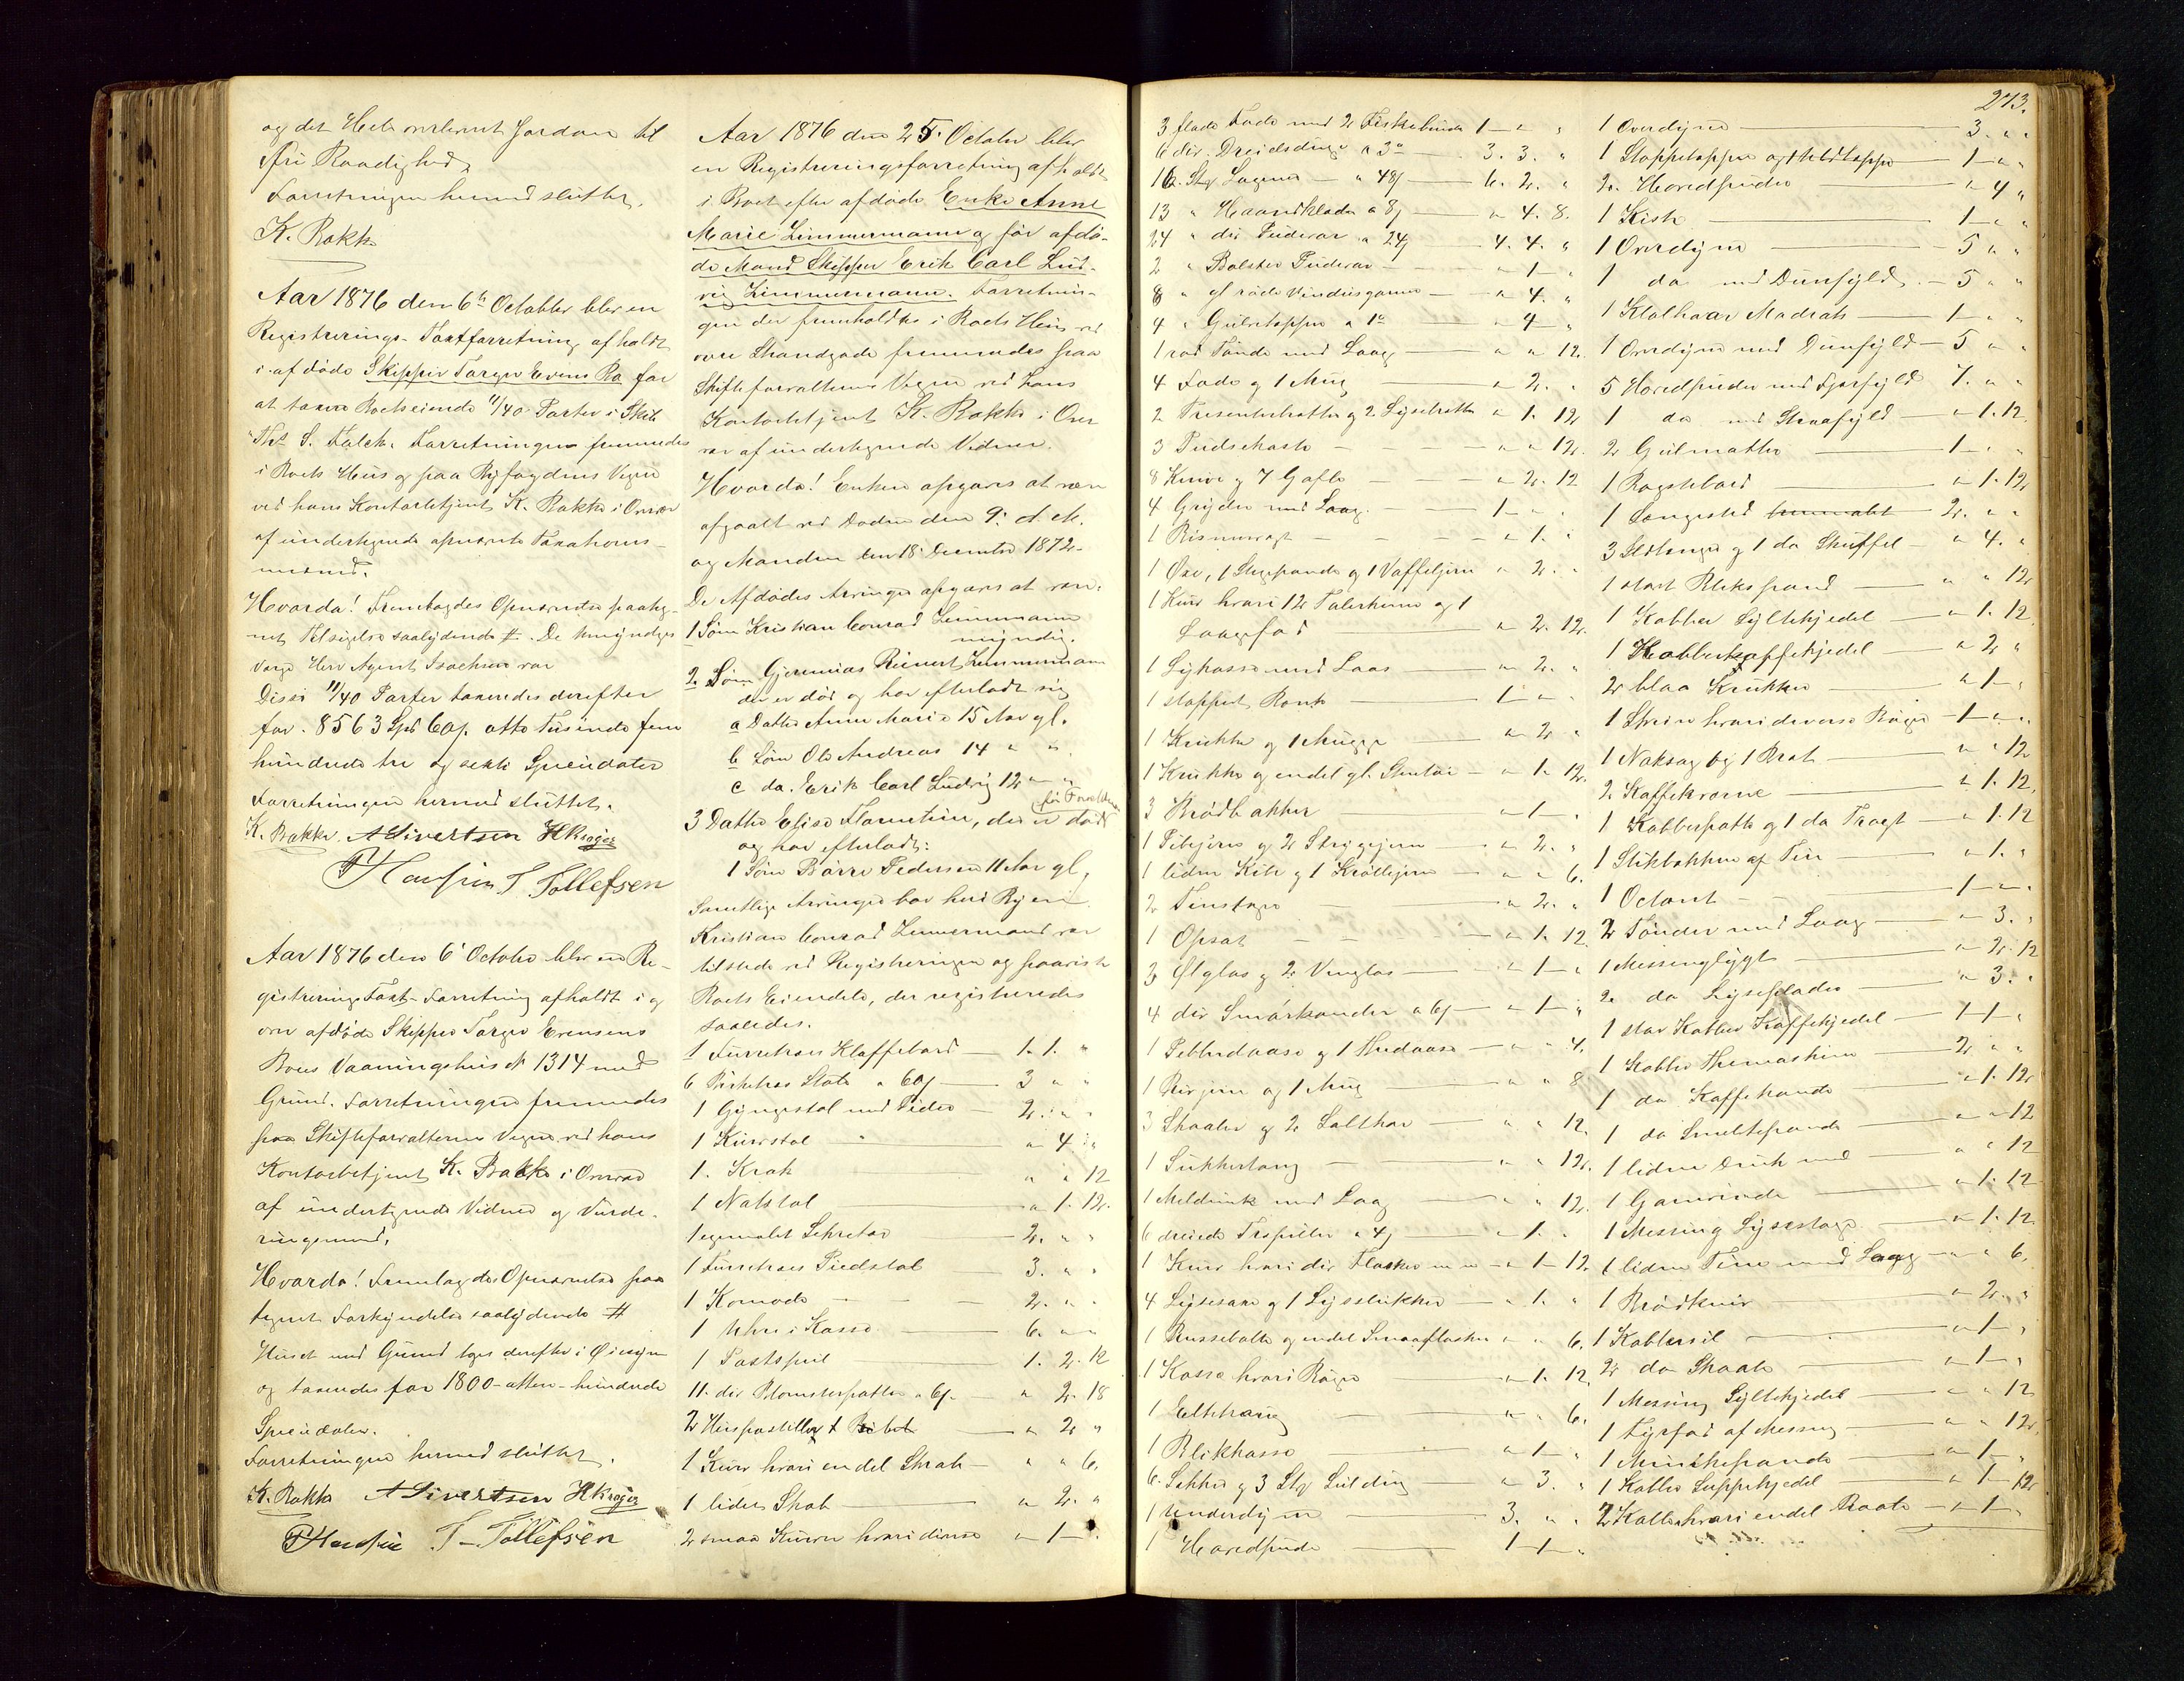 og det Hele overleveret Jordan til
fri Raadighed
Forretningen hermed sluttet.
K. Bakke
Aar 1876 den 6te October blev en
Registrerings- Taxtforretning afholdt
i afdøde Skipper Torger Evens Bo for
at taxere Boets eiende 11/40 Parter i Skib
Forretningen fremmedes
i Boets Hus og paa Byfogdens Vegne
ved hans Kontorbetjent K. Bakke i Overvær
af undertegnede opnævnte Taxations-
mænd.
Hvorda! Fremlagdes Opnævnelse paateg-
net Tilsigelse saalydende #. De Umyndiges
Værge Herr Agent Isachsen var
Disse 11/40 Parter taxeredes derefter
for 8563 Spd Cop. otte Tusinde fem
hundrede tre og sexti Speciedaler
Forretningen hermed sluttet.
K. Bakke. A Sivertsen H Krøger
T. Tollefsen
Aar 1876 den 6 October blev en Re-
gistrerings Taxt-Forretning afholdt i og
over afdøde Skipper Torger Evensens
Boes Vaaningshus No 1314 med
Grund. Forretningen fremmedes
paa Skifteforvalterens Vegne ved hans
Kontorbetjent K. Bakke i Overvær
af undertegnede Vidner og Vurde-
ringsmænd.
Hvorda! Fremlagdes Opnævnelse paa-
tegnet Forkyndelse saalydende #
Huset med Grund toges derefter i Øiesyn
og taxeredes for 1800-atten-hundrede
Speciedaler.
Forretningen hermed sluttet.
K. Bakke A Sivertsen H Krøger
T- Tollefsen
Aar 1876 den 25. October blev
en Registreringsforretning afholdt
i Boet efter afdøde Enke Anne
Marie Zimmermann og før afdø-
de Mand Skipper Erik Carl Lud-
vig Zimmermann. Forretnin-
gen der fremholdtes i Boets Hus ved
øvre Strandgade fremmedes paa
Skifteforvalterens Vegne ved hans
Kontorbetjent K. Bakke i Over
vær af undertegnede Vidner.
Hvorda! Enken opgaves at være
afgaaet ved Døden den 9. d. M.
og Manden den 18 December 1872.
De Afdødes Arvinger opgaves at være:
1 Søn Kristian Conrad Zimmermann
myndig.
2. Søn Gjeremias Reinert Zimmermann
der er død og har efterladt sig
a Datter Anne Marie 15 Aar gl.
b Søn Ole Andreas 14 " "
c do. Erik Carl Ludvig 12 " "
før Forældrene
3 Datter Elise Florentine, der er død
og har efterladt:
1 Søn Børre Pedersen 11 Aar gl,
Samtlige Arvinger bor her i Byen
Kristian Conrad Zimmermand var
tilstede ved Registreringen og paaviste
Boets Eiendele, der registreredes
saaledes.
1 Furretræes Klaffebord — 1. 1. "
6 Birketræs Stole a 60 — 3 " "
1 Gyngestol med Puder — 2. " "
1 Kurvstol " 4. "
1. Krak " " 12
1 Natstol " 1. 12.
1 egemalet Sekretær — 2. " "
1 Furretræes Piedstal — 3. " "
1 Komode — 2. " "
1 Uhr i Kasse — 6. " "
1 1. 2. 12
11. div Blomsterpotter a 6 — " 2. 18
2 Huspostiller 1 Bibel — " 2 "
1 Kurv hvori en del Skrab — " " 6.
1 liden Skab — " 2. "
2 smaa Kurve hvori diverse " 1 — "
273.
3 flade Fade med 2 Fiskebunde 1 — " "
6 div. Dreilsduge a 3 — 3. 3. "
16. Stk Lagener — a 48 — 6. 2. "
13 " Haandklæder a 8 — " 4. 8.
24 " div Pudevar a 24 — 4. 4. "
2 " Bolster Pudevar — " 1 — "
8 " gl røde Vindusgardiner — " 4. "
4 " Gulvtæpper a 1 — " 4 — "
1 rød Tønde med Laag — " " 12.
4 Fade og 1 Mug — " 2. "
2 Presenterbretter og 2 Lysebretter " 1. 12
3 Pudsekaste — " " 12.
8 Knive og 7 Gafler — " 2. 12
4 Gryder med Laag — 1 — " "
1 Bismervægt — " 1. "
1 Øxe, 1 Stegepande og 1 Vaffeljern " 2. "
1 Kurv hvori 12 Talerkener og 1
Laagfad — " 2. 12.
1 Lyskasse med Laas — " 2. "
1 stoppet Bænk — 1 — " "
1 Krukke og 1 Mugge — " 2 "
1 Krukke og endel gl. Stentøi — " 1. 12.
3 Brødbakker — " 1 — "
1 Pibejern og 2 Strygejern — " 2. "
1 liden Kiste og 1 Krøllejern — " " 6.
2 Tinstager — " 2. "
1 Opsat — " 1. 12
3 Ølglas og 2 Vinglas — " 1 — "
4 div Smørkander a 6 — " 1 — "
1 Pebberdaase og 1 Thedaase — " " 4.
1 Rivjern og 1 Mug — " " 8
3 Skaaler og 2 Saltkar — " " 12.
1 Sukkertang — " " 12.
1 Melbunk med Laag — " " 12.
6 dreiede Træpiller a 4 — " 1. "
1 Kurv hvori div Flasker m m — " 1 — 12.
4 Lysesaxe og 1 Lysslukker — " 1. "
1 Russebolle og endel Smaaflasker " " 6.
1 Kasse hvori Bøger — " 1. 12
1 Æltetraug — " " 6.
1 Blikkasse — " 1 — "
6. Sække og 3 Stk — " 3. "
1 Underdyne — 3. " "
1 Hovedpude — 1 — 1 — "
1 Overdyne — 3. " "
1 Stoppetæppe og 1 Uldtæppe — 1 — " "
2. Hovedpuder — " 4 "
1 Kiste — 1 — " "
1 Overdyne — 5 " "
1 do med Dunfyld — 5 " "
1 Kalvhaar Madrats — 1 — " "
1 Overdyne med Dunfyld — 5 " "
5 Hovedpuder med Fjærfyld 7. " "
1 do med Straafyld — " 1. 12
2 Gulvmatter — 1 — " "
1 Bagstebord — " 1. 12
1 Sengested — 2. " "
3 Ildtænger og 1 do Skuffel — " 4. "
1 stort Blikspand — " " 12
1 Kobber Syltekjedel — " 1. 12
1 Kobberkaffekjedel — " 2 "
2 blaa Krukker — " 1 — "
1 Skrin hvori diverse Bøger — 1 — " "
1 Naksag og 1 Brat — " " 12
2. Kaffekværne — " 1. 12.
1 Kobberpotte og 1 do Tragt — " 1. 12
1 Stikbækken af Tin — " 1. "
1 Octant — 1 — " "
2 Tønder med Laag — " 3. "
1 Messinglygte — " 2. 12
2. do Lyseplader — " 3. "
1 stor Kobber Kaffekjedel — 1 — 1 — "
1 Kobber Themaskine — 2 " "
1 do Kaffekande — " 1. 12.
1 do Smeltepande — " " 12
1 liden Dunk med — " " 12
1 Garnvinde — " 1. 12
1 Messing Lysestage — " 1. 12.
1 liden Tine med Laag — " " 6.
1 Brødkniv — " 2. "
1 Kobbersil — " 1 — "
2 do Skaale — " 1 — "
1 Messing Syltekjedel — " " 12
1 Fyrfad af Messing — " " 12
1 Munkepande — " 1 — "
1 Kobber Suppekjedel — " 1 — 12
2 Koller hvori endel Braate — " 1 — "